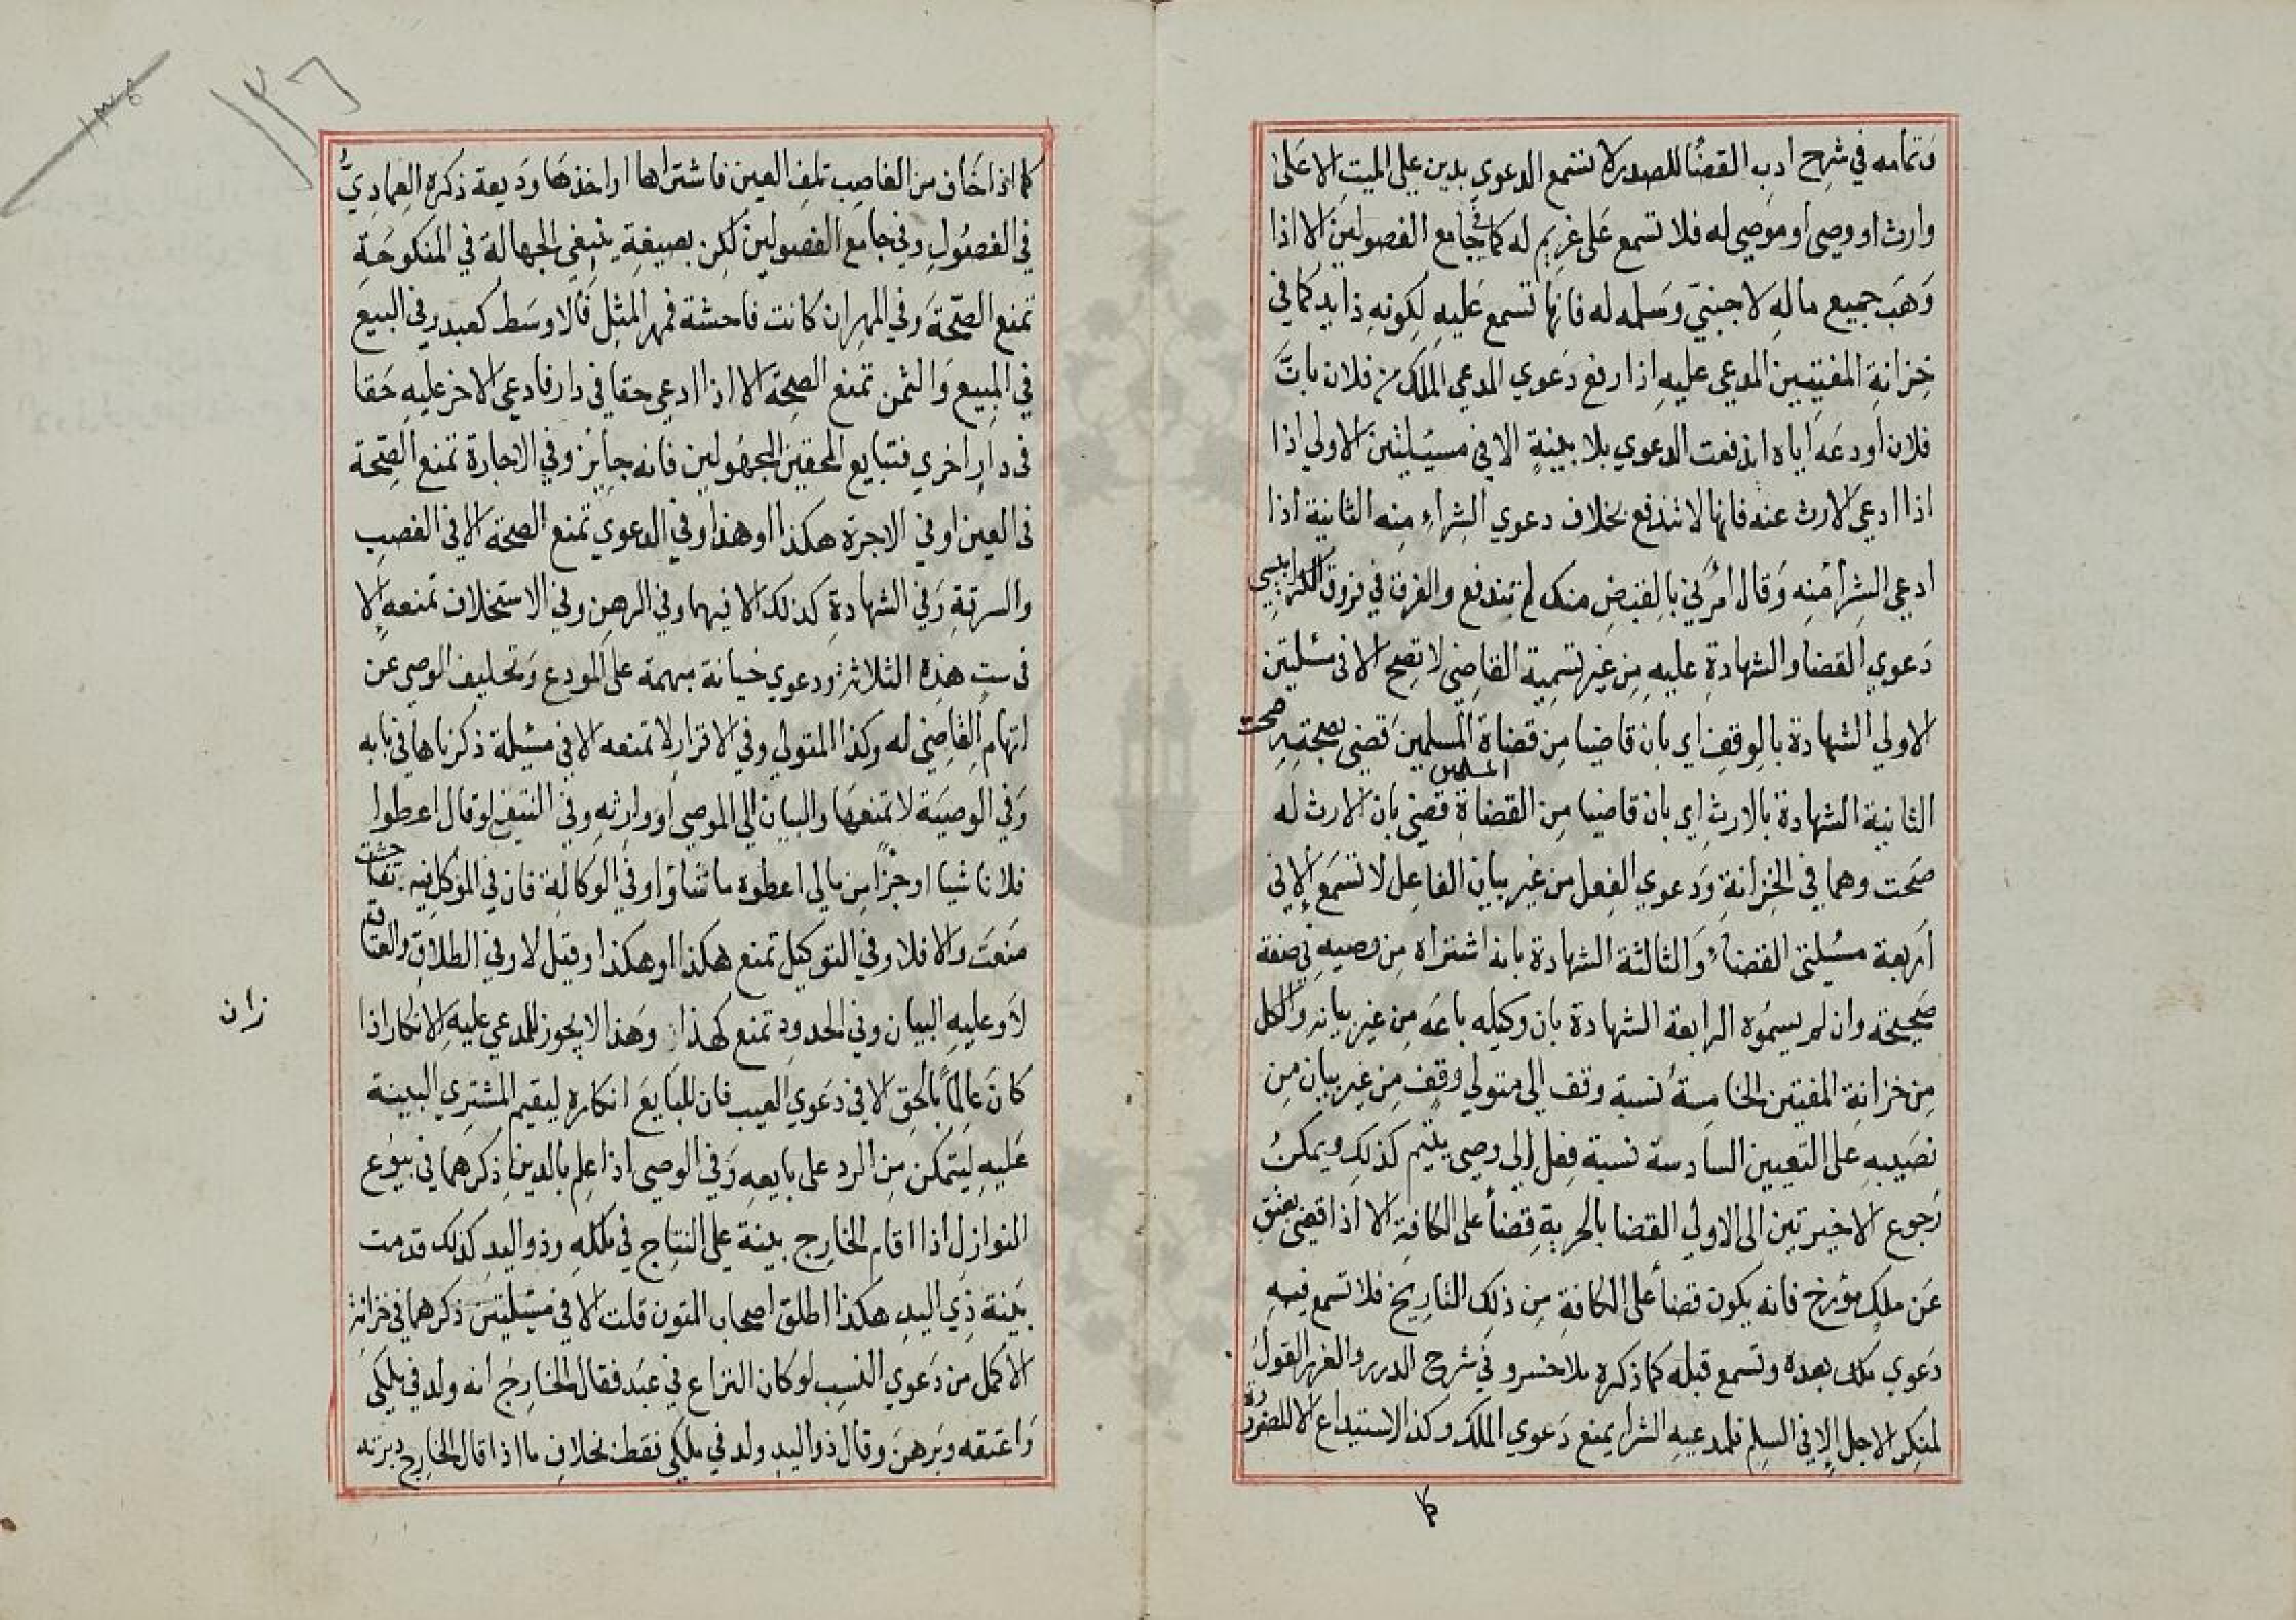 وتمامه في شرح ادب القضا للصدر لا تسمع الدعوي بدين علي الميت الا علي
وارث او وصي او موصي له فلا تسمع علي غريم له كما في جامع الفصولين الا اذا
وهب جميع ماله لاجنبي وسلمه له فانها تسمع عليه لكونه ذا يد كما في
خزانة المفتيين المدعي عليه اذا رفع دعوي المدعي الملك من فلان بان
فلان اودعه اياه اندفعت الدعوي بلا بينة الا في مسيلتين الاولي اذا
اذا ادعي الارث عنه فانها لا تندفع بخلاف دعوي الشراء منه الثانية اذا
ادعي الشرا منه وقال امرني بالقبض منك لم تندفع والفرق في فروق الكرابيسي
دعوي القضا والشهادة عليه من غير تسمية القاضي لا تصح الا في مسئلتين
الاولي الشهادة بالوقف اي بان قاضيا من قضاة المسلمين قضي بصحته صحت
المسلمين
الثانية الشهادة بالارث اي بان قاضيا من القضاة قضي بان الارث له
صحت وهما في الخزانة ودعوي الفعل من غير بيان الفاعل لا تسمع الا في
اربعة مسئلتي القضاء والثالثة الشهادة بانه اشتراه من وصيه في صغره
صحيحة وان لم يسموه الرابعة الشهادة بان وكيله باعه من غير بيانه والكل
من خزانة المفتين الخامسة نسبة وقف الي متولي وقف من غير بيان من
نصيبه علي التعيين السادسة نسبة فعل الي وصي يتيم كذلك ويمكن
رجوع الاخيرتين الي الاولي القضا بالحرية قضأ علي الكافة الا اذا قضي بعتق
عن ملك مؤرخ فانه يكون قضأ علي الكافة من ذلك التاريخ فلا تسمع فيه
دعوي ملك بعده وتسمع قبله كما ذكره ملا خسرو في شرح الدرر والغرر القول
لمنكر الاجل الا في السلم فلمدعيه الشرا يمنع دعوي الملك وكذا الاستيداع الا للضرورة
كما
١٣٥
١٣٦
كما اذا خاف من الغاصب تلف العين فاشتراها او اخذها وديعة ذكره العمادي
في الفصول وفي جامع الفصولين لكن بصيغة ينبغي الجهالة في المنكوحة
تمنع الصحة وفي المهر ان كانت فاحشة فمهر المثل والا وسط كعبد وفي البيع
في المبيع والثمن تمنع الصحة الا اذا ادعي حقا في دار فادعي الاخر عليه حقا
في دار اخري فتبايع الحقين المجهولين فانه جايز وفي الاجارة تمنع الصحة
في العين او في الاجرة هكذا او هذا وفي الدعوي تمنع الصحة الا في الغصب
والسرقة وفي الشهادة كذلك الا فيهما وفي الرهن وفي الاستحلاف تمنعه الا
في ست هذه الثلاثة ودعوي خيانة مبهمة علي المودع وتحليف الوصي عن
اتهام القاضي له وكذا المتولي وفي الاقرار لا تمنعه الا في مسئلة ذكرناها في بابه
وفي الوصية لا تمنعها والبيان الي الموصي او وارثه وفي المنتقي لو قال اعطوا
فلانا شيا او جزا من مالي اعطوه ما شاؤا وفي الوكالة فان في الموكل فيه تفاحشت
منعت والا فلا وفي التوكيل تمنع هكذا او هكذا وقيل لا وفي الطلاق والعتاق
لا وعليه البيان وفي الحدود تمنع كهذا زان وهذا لا يجوز للمدعي عليه الانكار اذا
كان عالما بالحق الا في دعوي العيب فان للبايع انكاره ليقيم المشتري البينة
عليه ليتمكن من الرد علي بايعه وفي الوصي اذا علم بالدين ذكرهما في بيوع
النوازل اذا اقام الخارج بينة علي النتاج في ملكه وذو اليد كذلك قدمت
بينة ذي اليد هكذا اطلق اصحاب المتون قلت الا في مسئلتين ذكرهما في خزانة
الاكمل من دعوي النسب لو كان النزاع في عبد فقال الخارج انه ولد في ملكي
واعتقه وبرهن وقال ذو اليد ولد في ملكي فقط بخلاف ما اذا قال الخارج دبرته